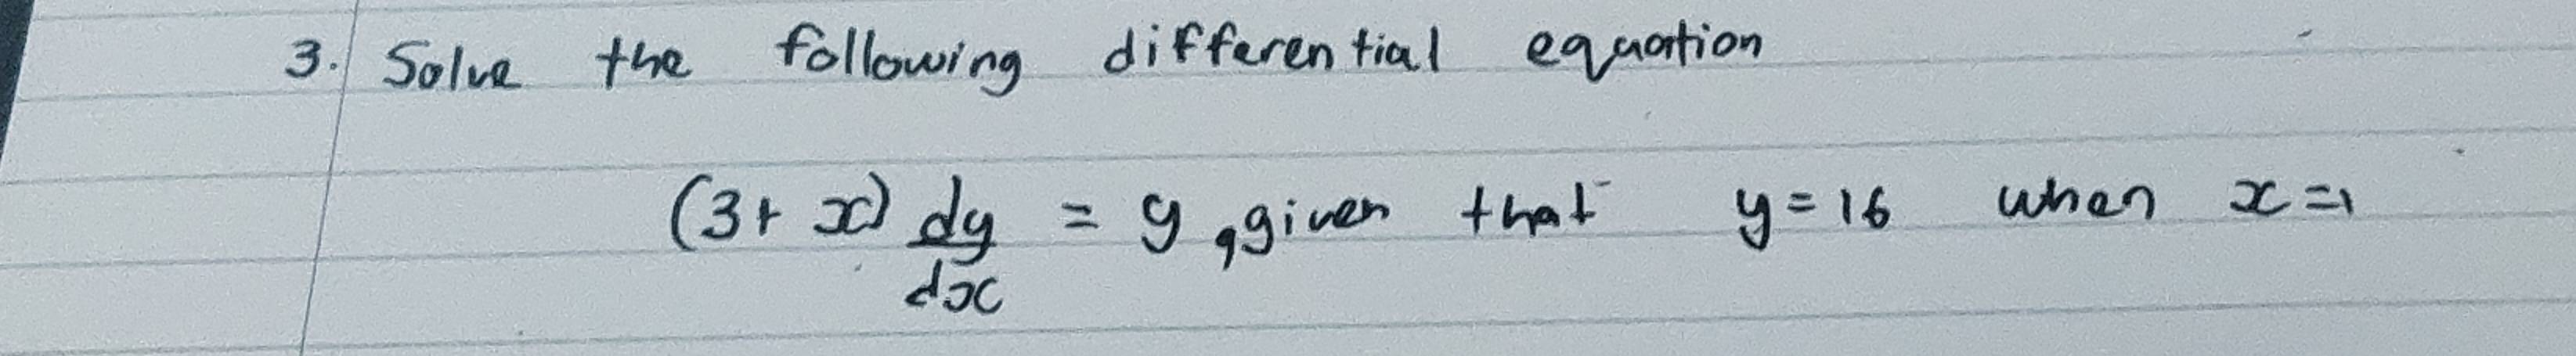 3. Solve the following differential equation
(3+ x) dy/dx = y, given that y = 16 when x = 1